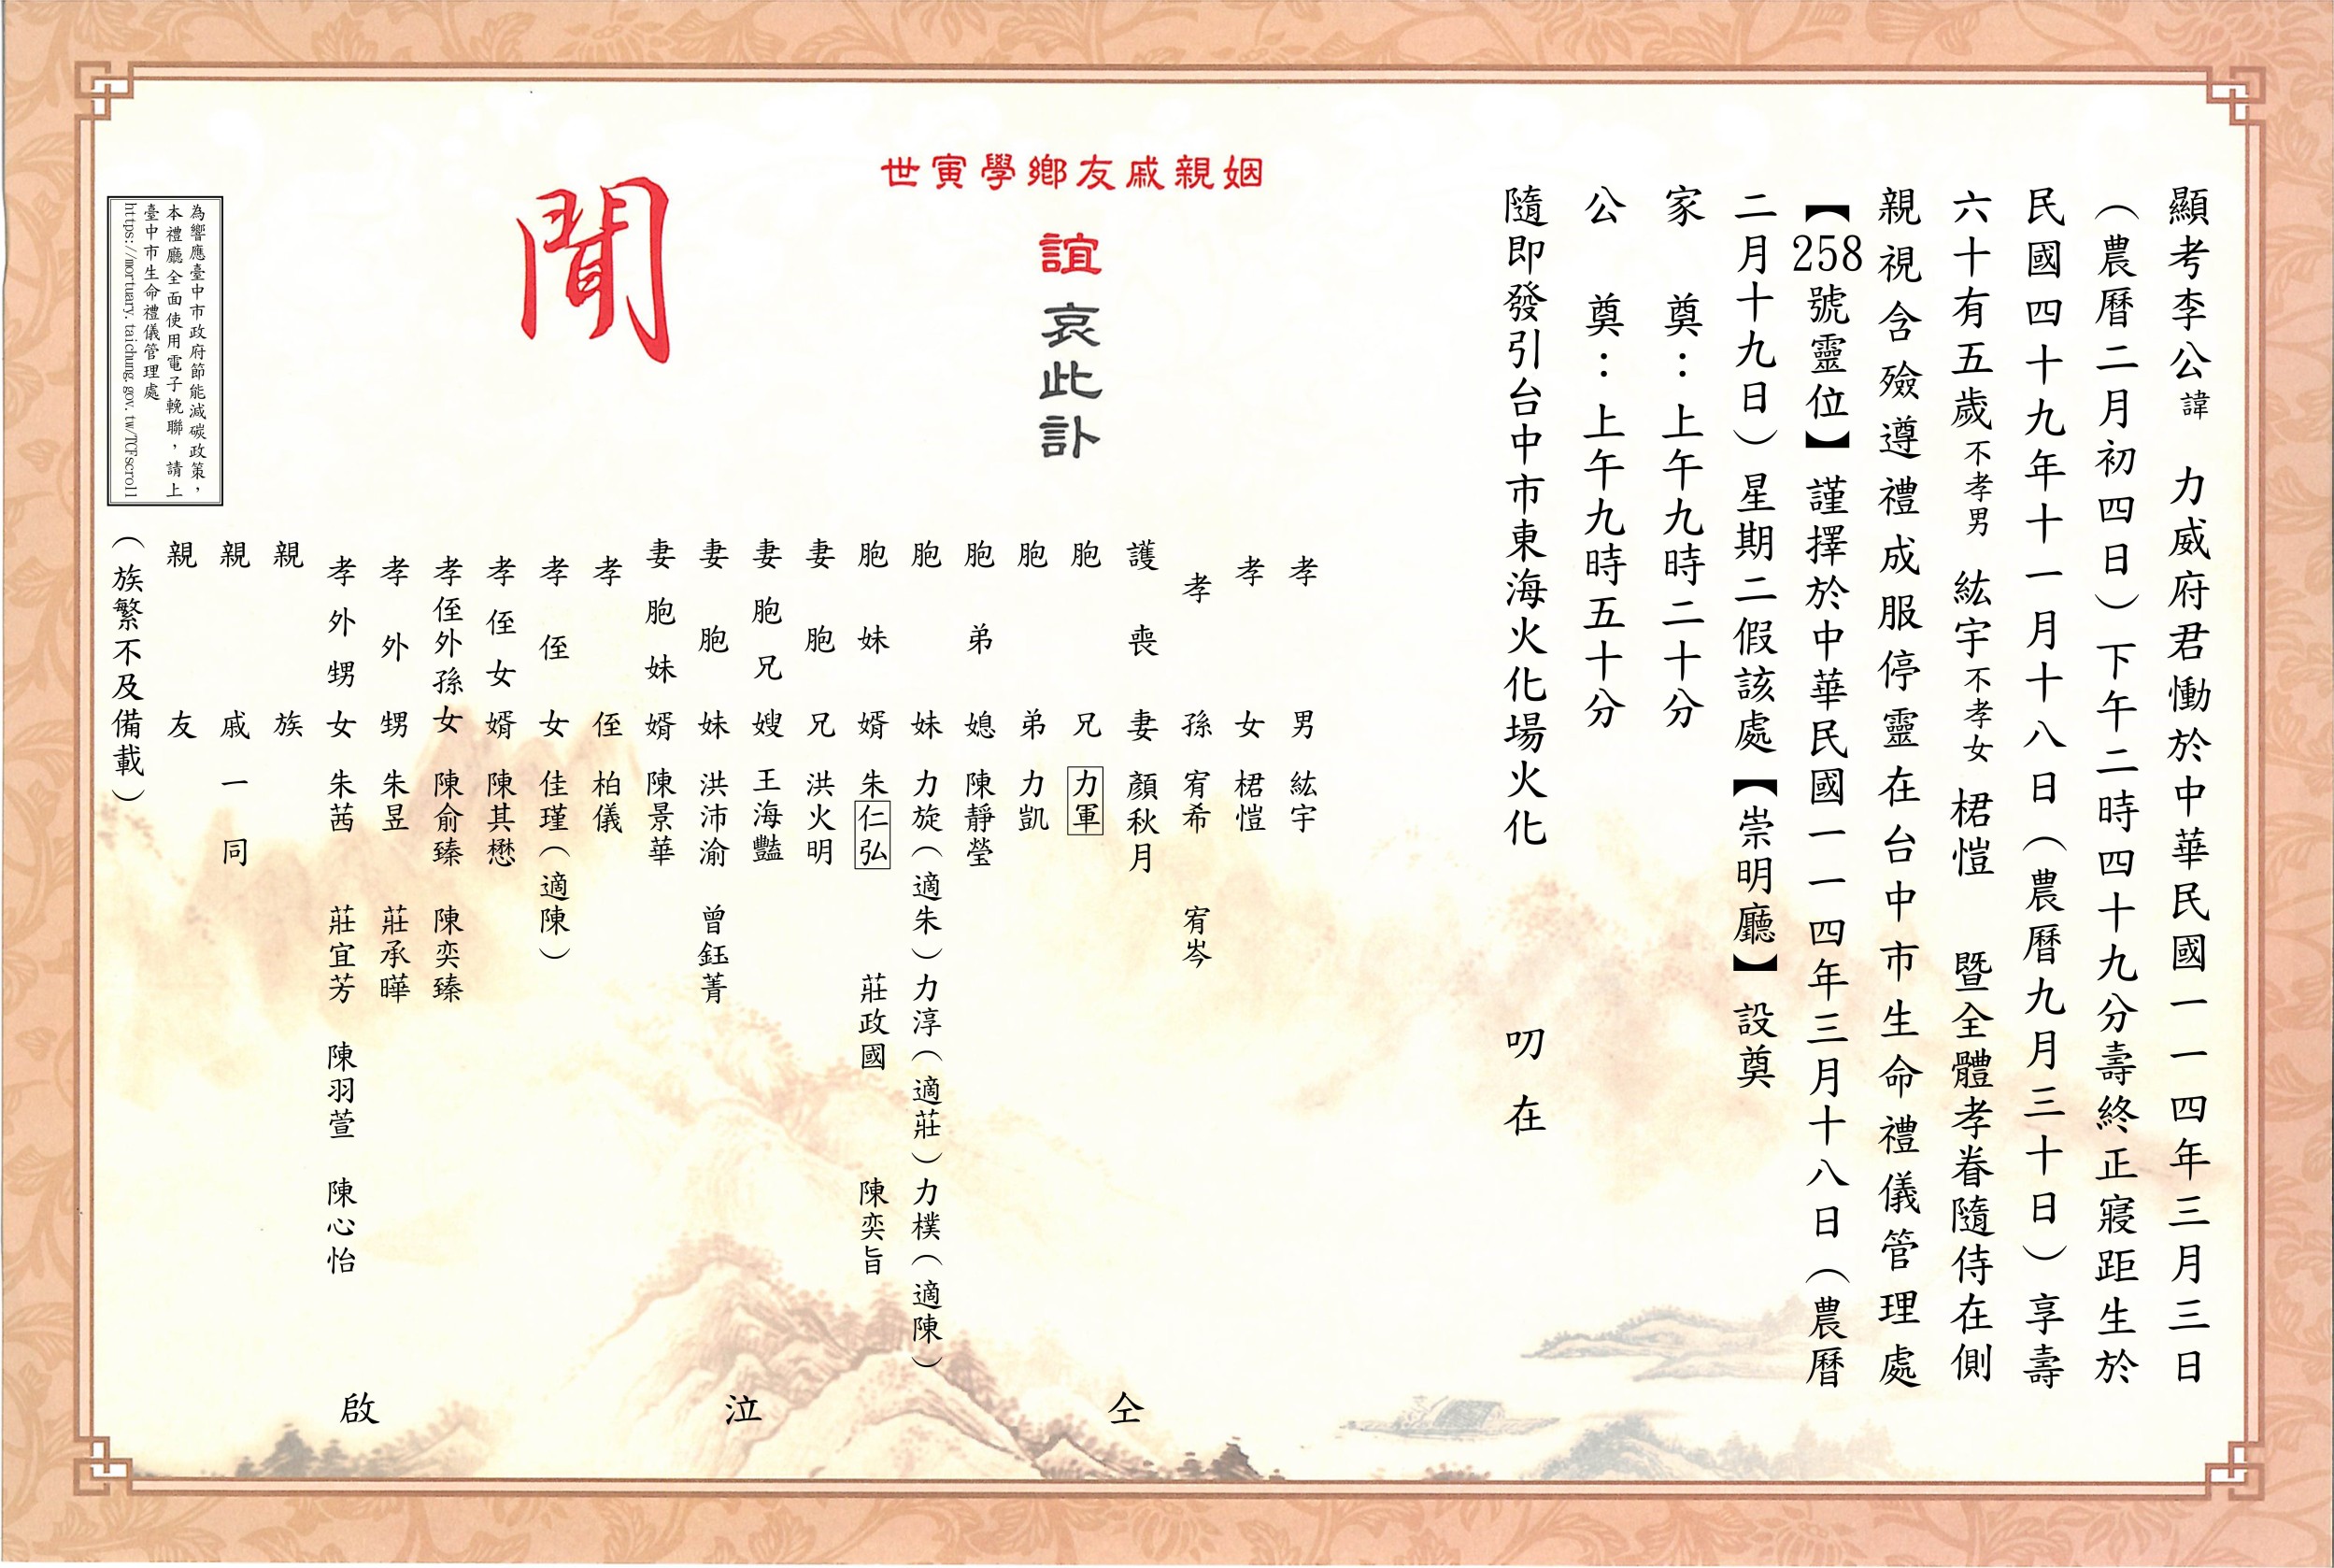 顯考李公諱 力威府君慟於中華民國一一四年三月三日
（農曆二月初四日）下午二時四十九分壽終正寢距生於
民國四十九年十一月十八日（農曆九月三十日）享壽
六十有五歲不孝男 紘宇不孝女 桾愷 暨全體孝眷隨侍在側
親視含殮遵禮成服停靈在台中市生命禮儀管理處
【258號靈位】謹擇於中華民國一一四年三月十八日（農曆
二月十九日）星期二假該處【崇明廳】設奠
家 奠：上午九時二十分
公 奠：上午九時五十分
隨即發引台中市東海火化場火化 叨在
世寅學鄉友戚親姻
誼哀此訃
聞
孝男 紘宇
孝女 桾愷
孝孫 宥希 宥岑
護喪妻 顏秋月
胞兄 力軍
胞弟 力凱
胞弟媳 陳靜瑩
胞妹 力旋（適朱）力淳（適莊）力樸（適陳）
胞妹婿 朱仁弘 莊政國 陳奕旨
妻胞兄 洪火明
妻胞兄嫂 王海豔
妻胞妹 洪沛渝 曾鈺菁
妻胞妹婿 陳景華
孝侄 柏儀
孝侄女 佳瑾（適陳）
孝侄女婿 陳其懋
孝侄外孫女 陳俞臻 陳奕臻
孝外甥 朱昱 莊承曄
孝外甥女 朱茜 莊宜芳 陳羽萱 陳心怡
親族
親戚一同
親友
（族繁不及備載）
仝泣啟
為響應臺中市政府節能減碳政策，
本禮廳全面使用電子輓聯，請上
臺中市生命禮儀管理處
https://mortuary.taichung.gov.tw/TCFscroll